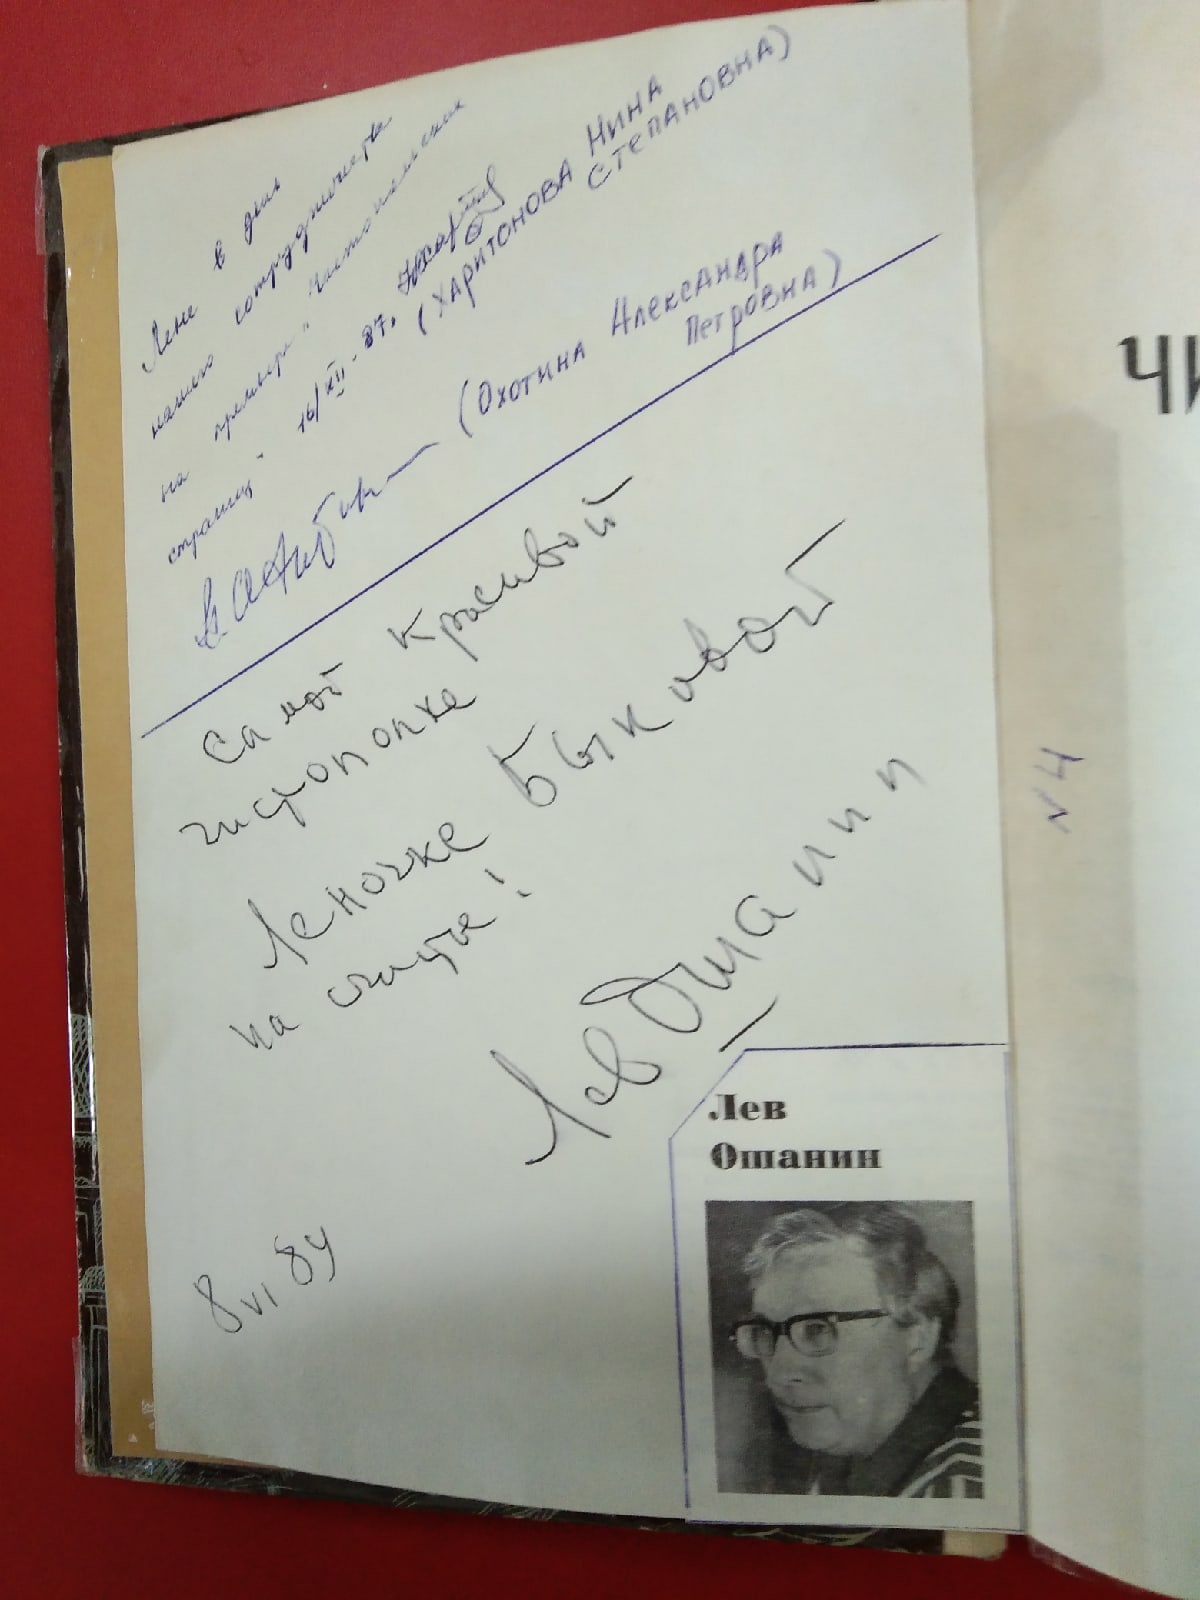 Лене в день
нашего сотрудничества
на премьере "Чистопольских
страниц" 16/XII-87г.
(ХАРИТОНОВА НИНА
СТЕПАНОВНА)
(Охотина Александра
Петровна)
Самой красивой
чистополке
Леночке Быковой
на счастье!
Лев Ошанин
8 VI 84
Лев
Ошанин
ЧИ
N4